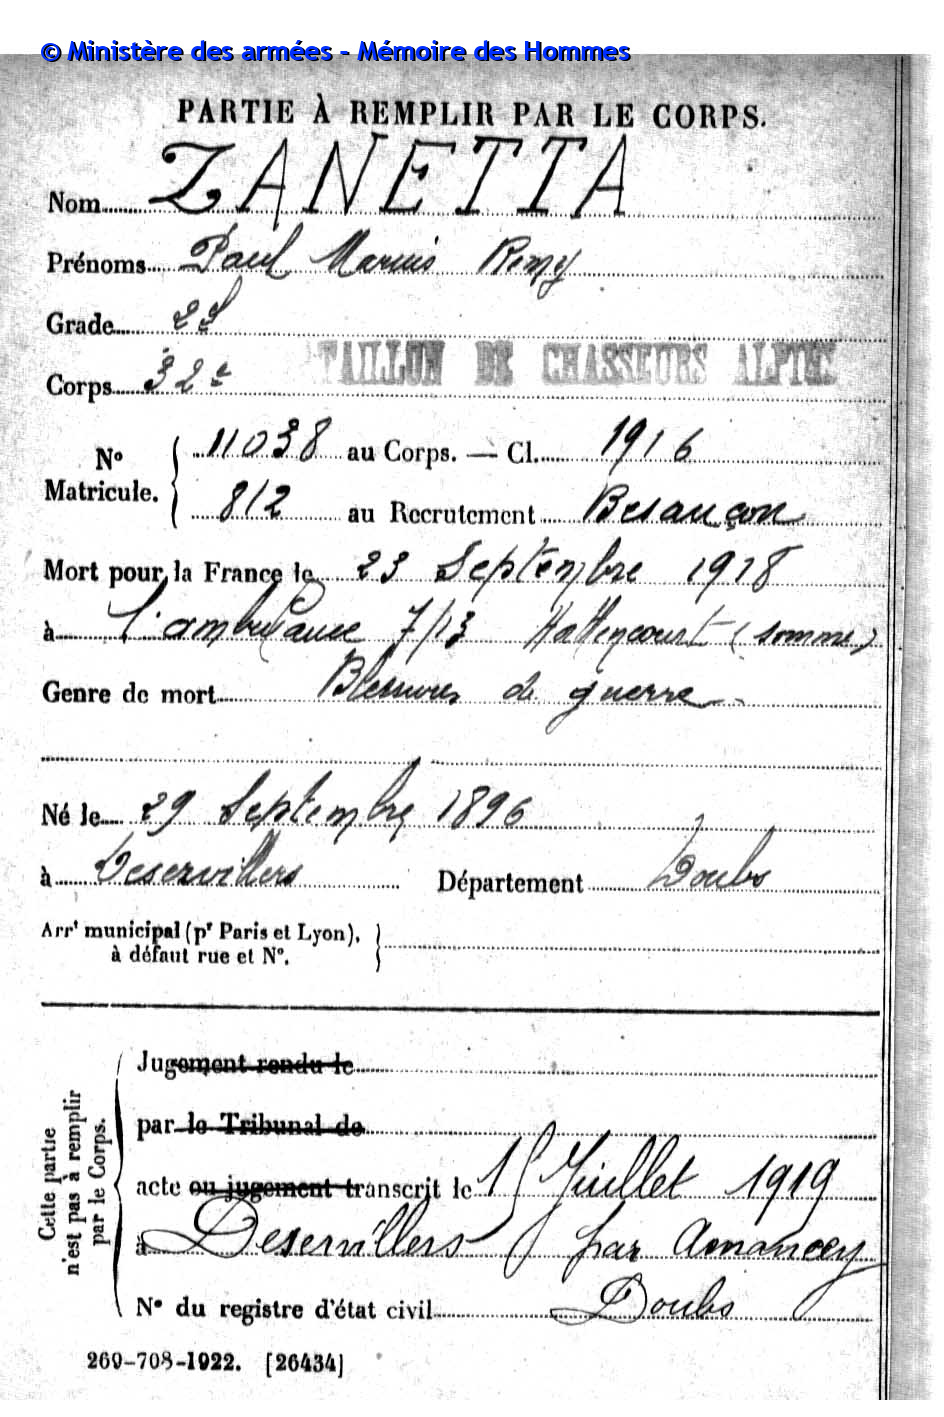 © Ministère des armées - Mémoire des Hommes
PARTIE À REMPLIR PAR LE CORPS.
Nom ZANETTA
Prénoms Paul Marius Remy
Grade 2e
Corps 32e TAILLON DE CHASSEURS ALPINS
No Matricule. 11038 au Corps. — Cl. 1916
812 au Recrutement Besançon
Mort pour la France le 23 Septembre 1918
à l'ambulance 7/13 Hallencourt (Somme)
Genre de mort Blessures de guerre
Né le 29 Septembre 1896
à Deservillers Département Doubs
Arrt municipal (pr Paris et Lyon),
à défaut rue et No.
Cette partie
n'est pas à remplir
par le Corps.
Jugement rendu le
par le Tribunal de
acte ou jugement transcrit le 15 Juillet 1919
à Deservillers par Amancey
Doubs
No du registre d'état civil
269-708-1922. [26434]